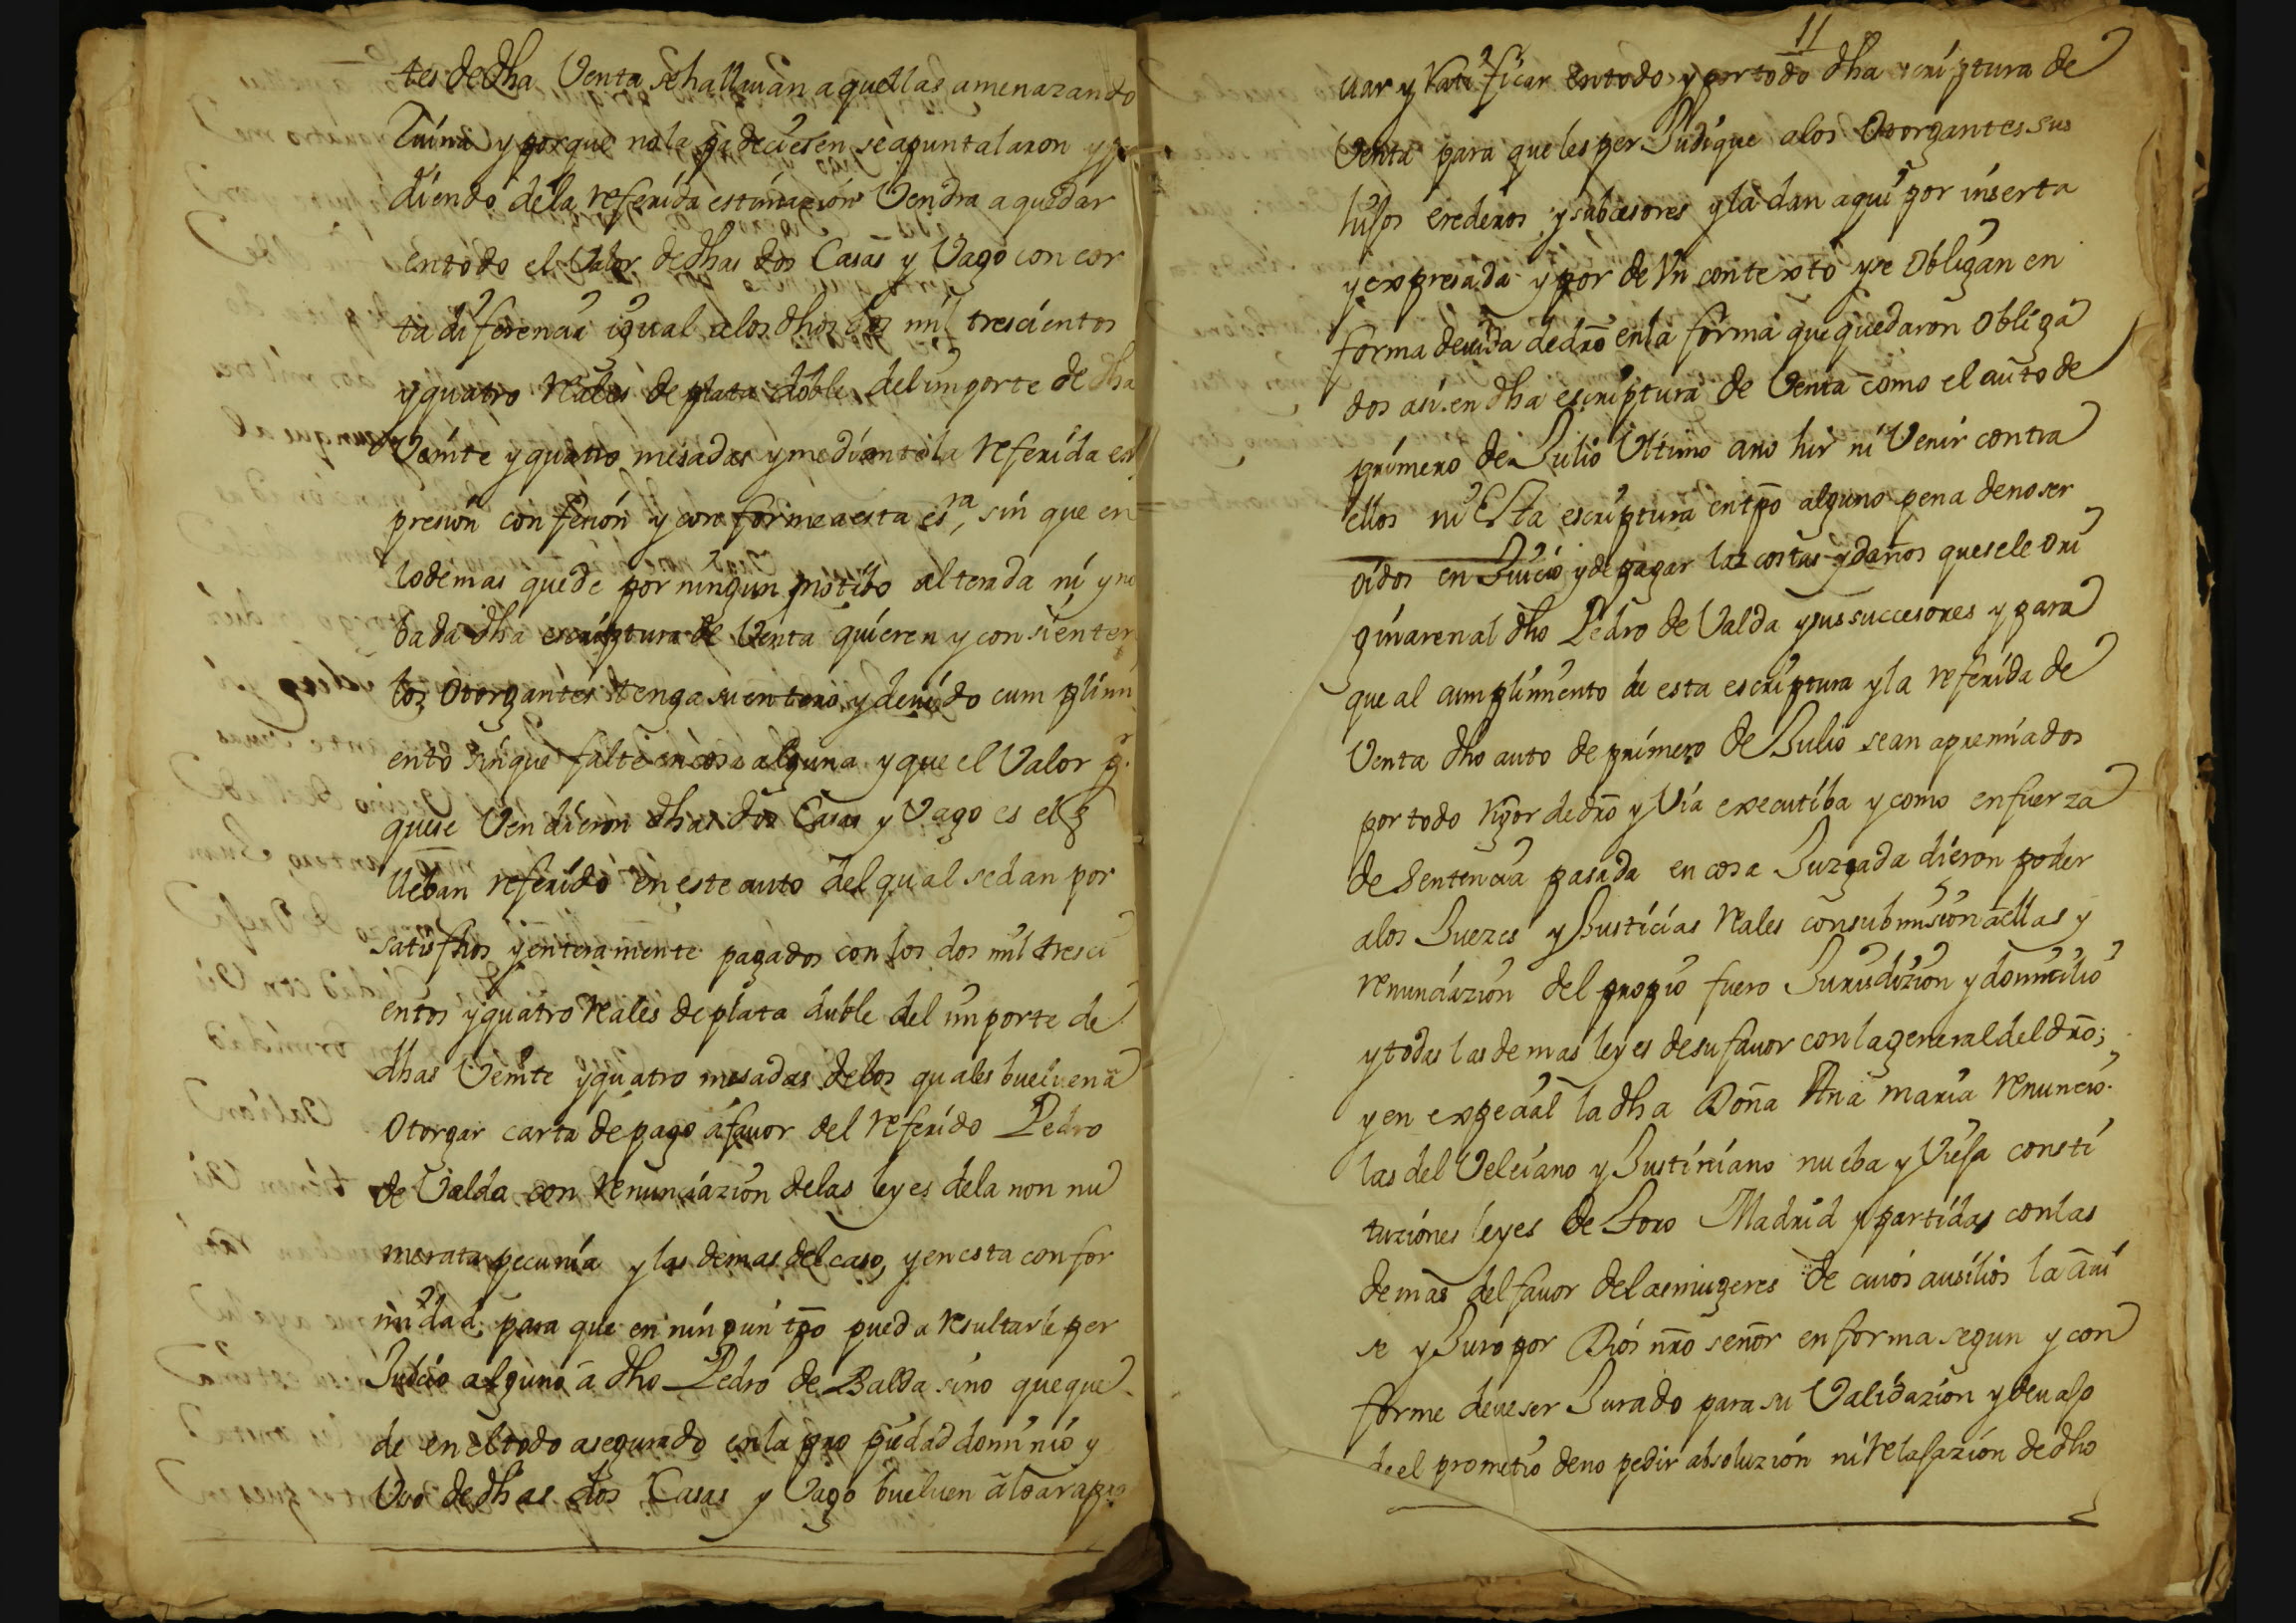 tes de dha Venta se hallauan aquellas amenazando
Ruina y porque no la padeciesen se apuntalaron y
diendo de la referida estimazion Vendra a quedar
en todo el Valor de dhas dos Casas y Vago con cor
ta diferencia igual a los dhos dos mil trescientos
y quatro Reales de plata doble del importe de dha
Veinte y quatro mesadas y mediante la referida es
presion confesion y conforme a esta esra, sin que en
lo demas quede por ningun motibo alterada ni yno
bada dha escriptura de Venta quieren y consienten
los Otorgantes tenga su entero y deuido cumplimi
ento sin que falte en cosa alguna y que el Valor pr
que se Vendieron dhas dos Casas y Vago es el q
lleban referido en este auto del qual se dan por
satisfhos y enteramente pagados con los dos mil tresci
entos y quatro Reales de plata duble del importe de
dhas Veinte y quatro mesadas de los quales bueluen a
Otorgar carta de pago á fauor del referido Pedro
de Valda con Renunciazion de las leyes de la non nu
merata pecunia y las demas del caso, y en esta confor
midad para que en ningun tpo pueda resultarle per
Juicio alguno a dho Pedro de Balda sino que que
de en el todo asegurado en la propiedad dominio y
Vso de dhas dos Casas y Vago bueluen a loar apro
11
uar y Ratificar en todo y por todo dha scriptura de
Venta para que les perJudique a los Otorgantes sus
hijos erederos y subcesores y la dan aqui por inserta
y expresada y por de Vn contexto y se Obligan en
forma deuida de dro en la forma que quedaron Obliga
dos asi en dha escriptura de Venta como el auto de
primero de Julio Vltimo a no hir ni Venir contra
ellos ni Esta escriptura en tpo alguno pena de no ser
oidos en Juicio y de pagar las costas y daños que se le ori
ginaren al dho Pedro de Valda y sus succesores y para
que al cumplimiento de esta escriptura y la referida de
Venta dho auto de primero de Julio sean apremiados
por todo rigor de dro y Via executiba y como en fuerza
de Sentencia pasada en cosa Juzgada dieron poder
a los Juezes y Justicias Reales con submision a ellas y
renunciazion del propio fuero Jurisdizion y domicilio
y todas las demas leyes de su fauor con la general del dro;
y en expecial la dha Doña Ana maria renuncio
las del Veleiano y Justiniano nueba y Vieja consti
tuziones leyes de Toro Madrid y partidas con las
demas del fauor de las mugeres de cuios ausilios la aui
se y Juro por Dios nro señor en forma segun y con
forme deue ser Jurado para su Validazion y deuajo
de el prometio de no pedir absoluzion ni relajazion de dho